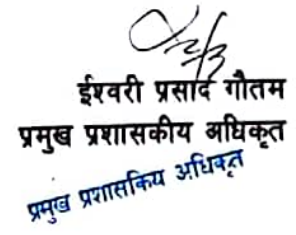 ईश्वरी प्रसाद गौतम
प्रमुख प्रशासकीय अधिकृत
प्रमुख प्रशासकिय अधिकृत